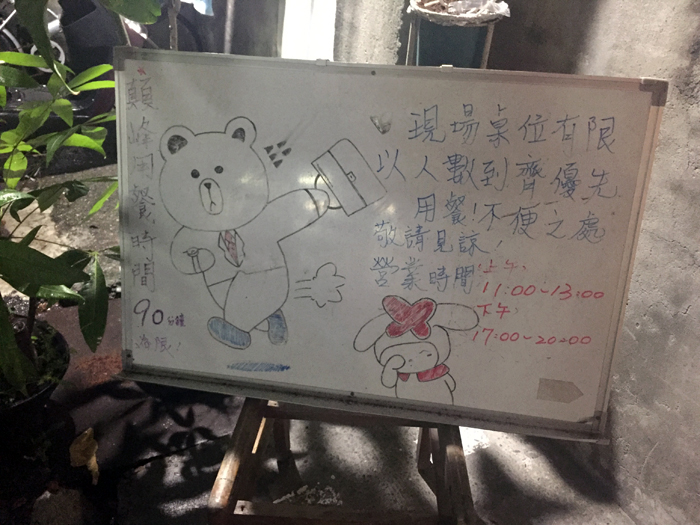 顛峰用餐時間
90分鐘
為限!
現場桌位有限
以人數到齊優先
用餐!不便之處
敬請見諒!
營業時間:上午:
11:00~13:00
下午:
17:00~20:00